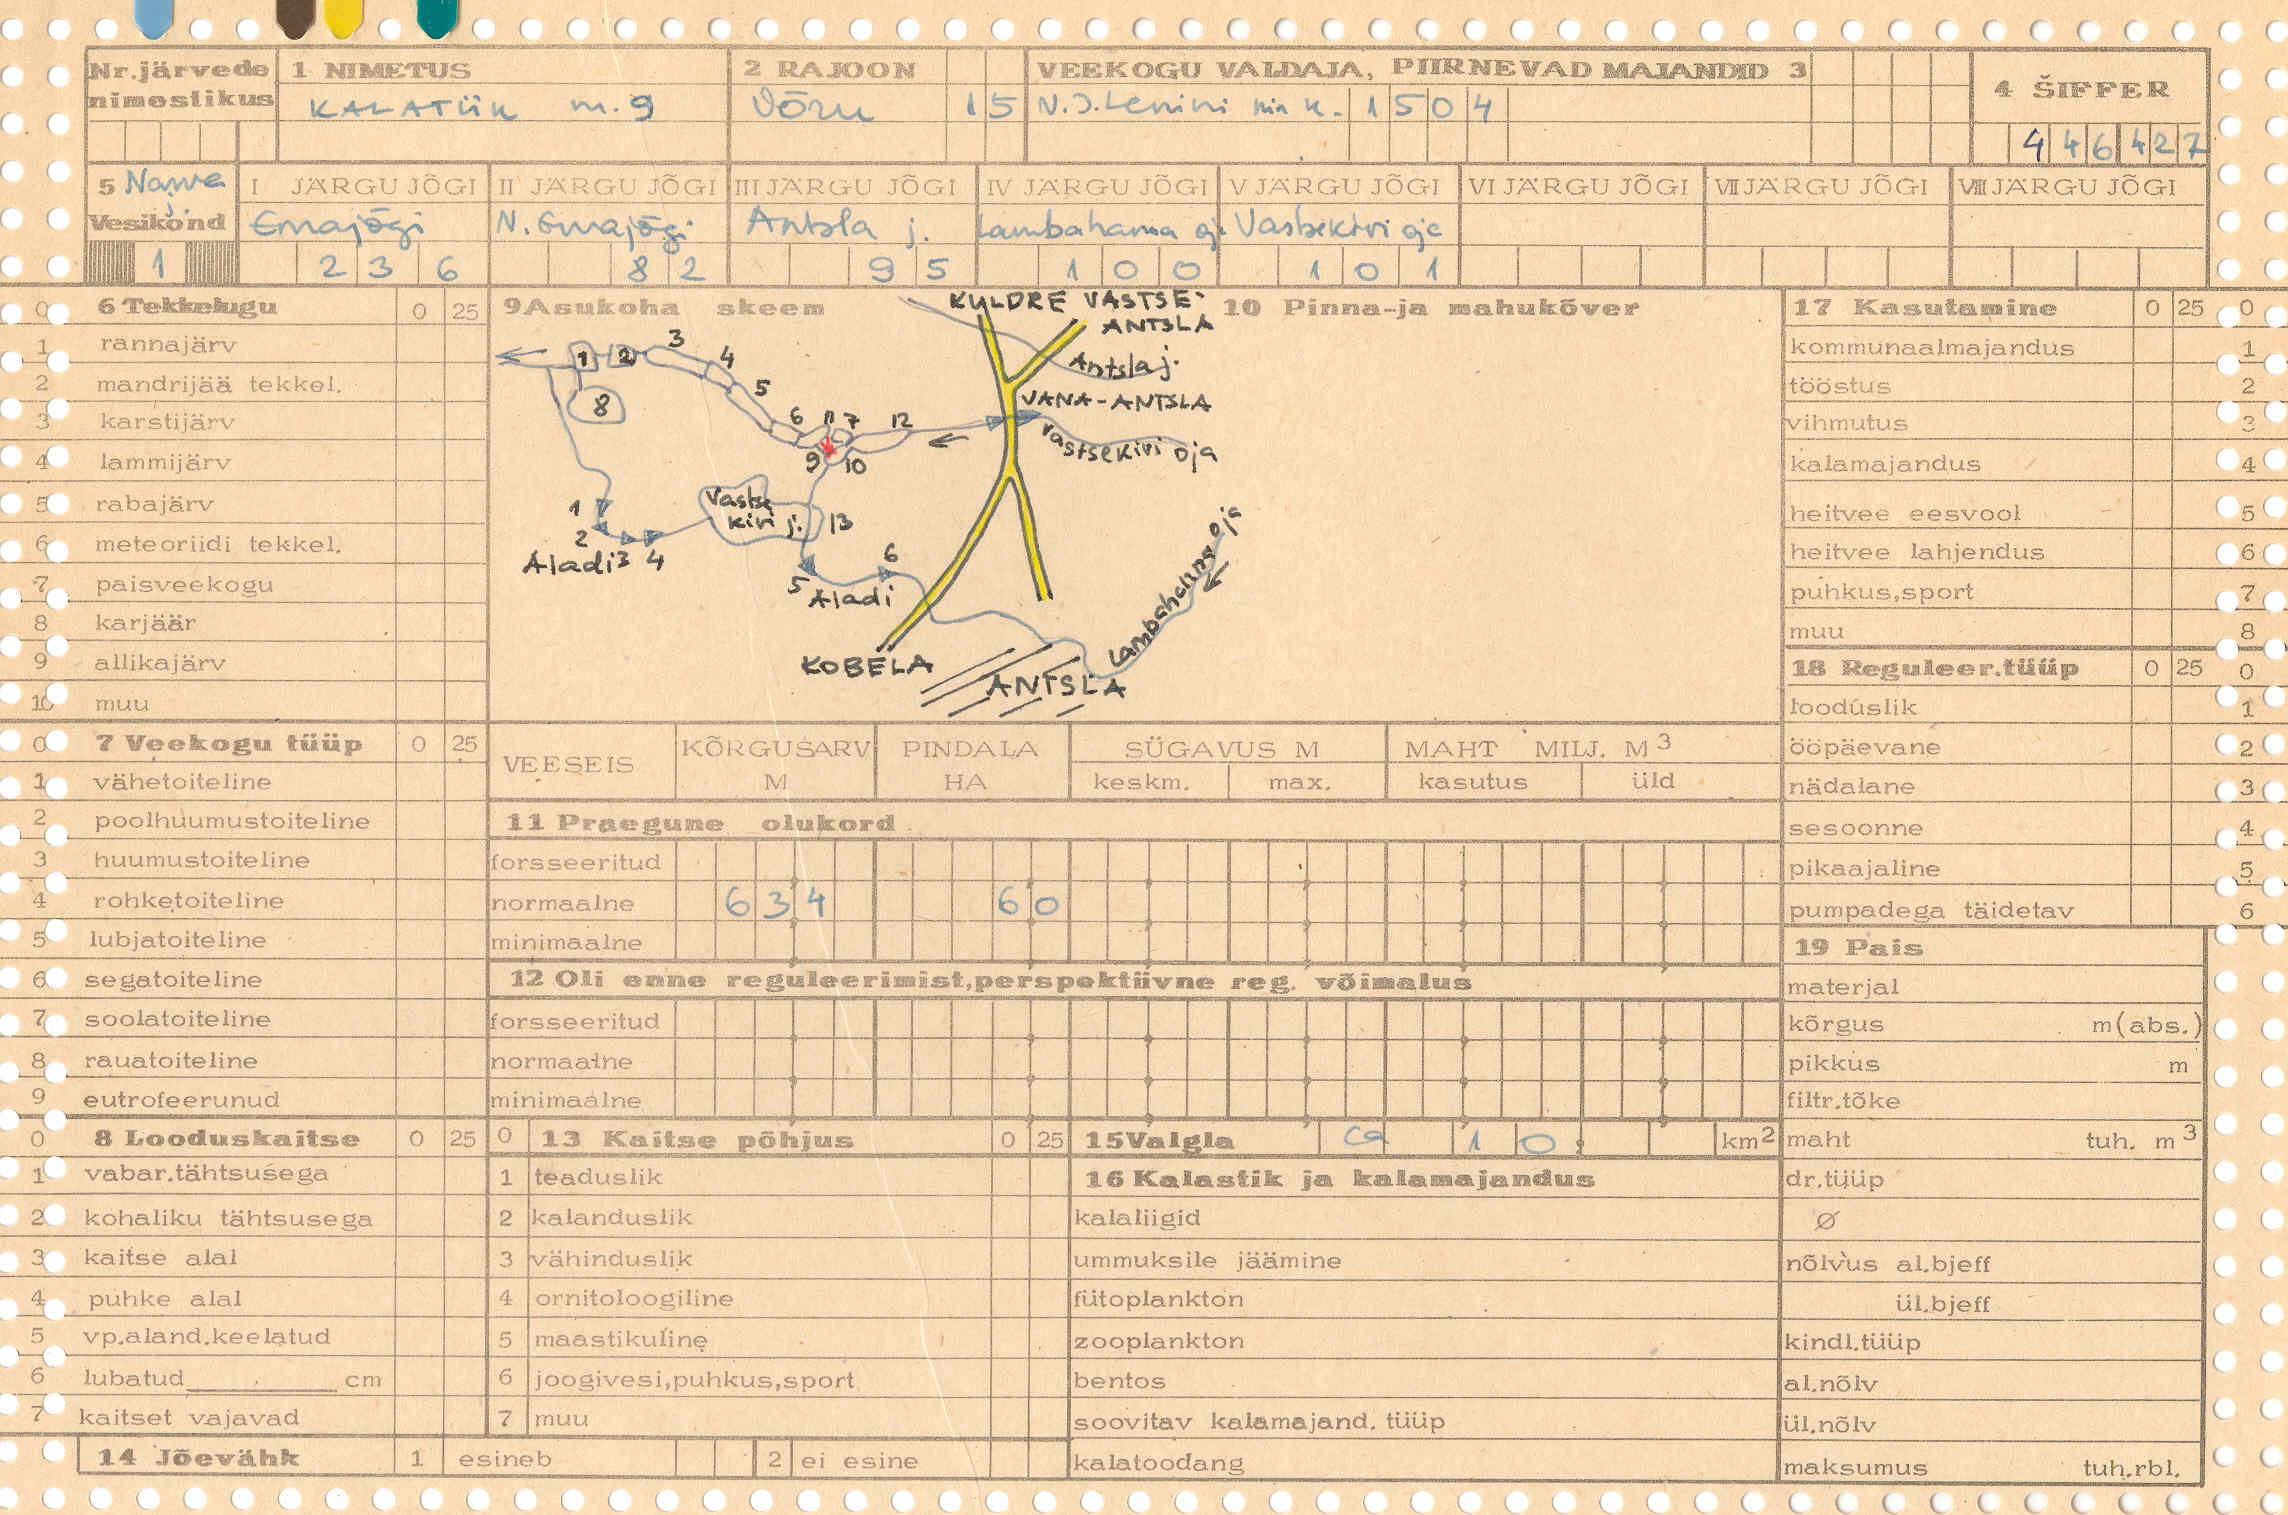 Nr.järvede nimestikus
1 NIMETUS
KALATIIK nr. 9
2 RAJOON
Võru 15
VEEKOGU VALDAJA, PIIRNEVAD MAJANDID 3
V.I.Lenini nim k. 1504
4 ŠIFFER
446427
5 Narva j. Vesikond
1
I JÄRGU JÕGI
Emajõgi
236
II JÄRGU JÕGI
N. Emajõgi
82
III JÄRGU JÕGI
Antsla j.
95
IV JÄRGU JÕGI
Lambahanna oj.
100
V JÄRGU JÕGI
Vastsekivi oja
101
VI JÄRGU JÕGI
VII JÄRGU JÕGI
VIII JÄRGU JÕGI
0 6 Tekkelugu 0 25
1 rannajärv
2 mandrijää tekkel.
3 karstijärv
4 lammijärv
5 rabajärv
6 meteoriidi tekkel.
7 paisveekogu
8 karjäär
9 allikajärv
10 muu
9 Asukoha skeem
KULDRE VASTSE-
ANTSLA
Antsla j.
VANA-ANTSLA
Vastsekivi oja
1 2 3 4 5 6 11 7 12
8
9 10
Vastse
kivi j. 13
1
2 3 4
Aladi
5 6
Aladi
Lambahanna oja
KOBELA
ANTSLA
10 Pinna-ja mahukõver
17 Kasutamine 0 25 0
kommunaalmajandus 1
tööstus 2
vihmutus 3
kalamajandus 4
heitvee eesvool 5
heitvee lahjendus 6
puhkus,sport 7
muu 8
18 Reguleer.tüüp 0 25 0
looduslik 1
ööpäevane 2
nädalane 3
sesoonne 4
pikaajaline 5
pumpadega täidetav 6
0 7 Veekogu tüüp 0 25
1 vähetoiteline
2 poolhuumustoiteline
3 huumustoiteline
4 rohketoiteline
5 lubjatoiteline
6 segatoiteline
7 soolatoiteline
8 rauatoiteline
9 eutrofeerunud
VEESEIS
KÕRGUSARV M
PINDALA HA
SÜGAVUS M
keskm. max.
MAHT MILJ. M3
kasutus üld
11 Praegune olukord
forsseeritud
normaalne 634 60
minimaalne
12 Oli enne reguleerimist,perspektiivne reg. võimalus
forsseeritud
normaalne
minimaalne
19 Pais
materjal
kõrgus m(abs.)
pikkus m
filtr.tõke
maht tuh. m3
dr.tüüp
Ø
nõlvus al.bjeff
ül.bjeff
kindl.tüüp
al.nõlv
ül.nõlv
maksumus tuh.rbl.
0 8 Looduskaitse 0 25
1 vabar.tähtsusega
2 kohaliku tähtsusega
3 kaitse alal
4 puhke alal
5 vp.aland.keelatud
6 lubatud________cm
7 kaitset vajavad
0 13 Kaitse põhjus 0 25
1 teaduslik
2 kalanduslik
3 vähinduslik
4 ornitoloogiline
5 maastikuline
6 joogivesi,puhkus,sport
7 muu
15 Valgla ca 10, km2
16 Kalastik ja kalamajandus
kalaliigid
ummuksile jäämine
fütoplankton
zooplankton
bentos
soovitav kalamajand. tüüp
kalatoodang
14 Jõevähk 1 esineb 2 ei esine